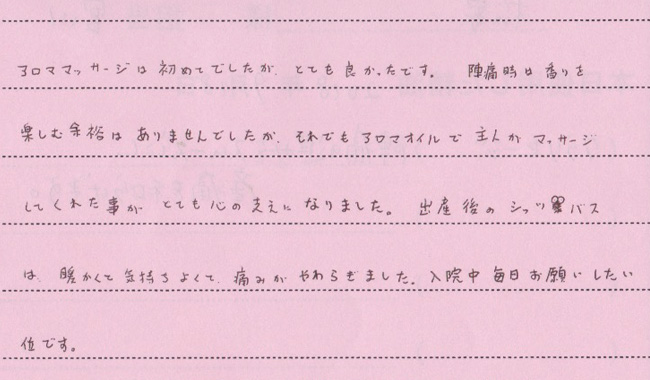 アロママッサージは初めてでしたが、とても良かったです。 陣痛時は香りを
楽しむ余裕はありませんでしたが、それでもアロマオイルで主人がマッサージ
してくれた事がとても心の支えになりました。 出産後のシッツバス
は、暖かくて気持ちよくて、痛みがやわらぎました。入院中毎日お願いしたい
位です。